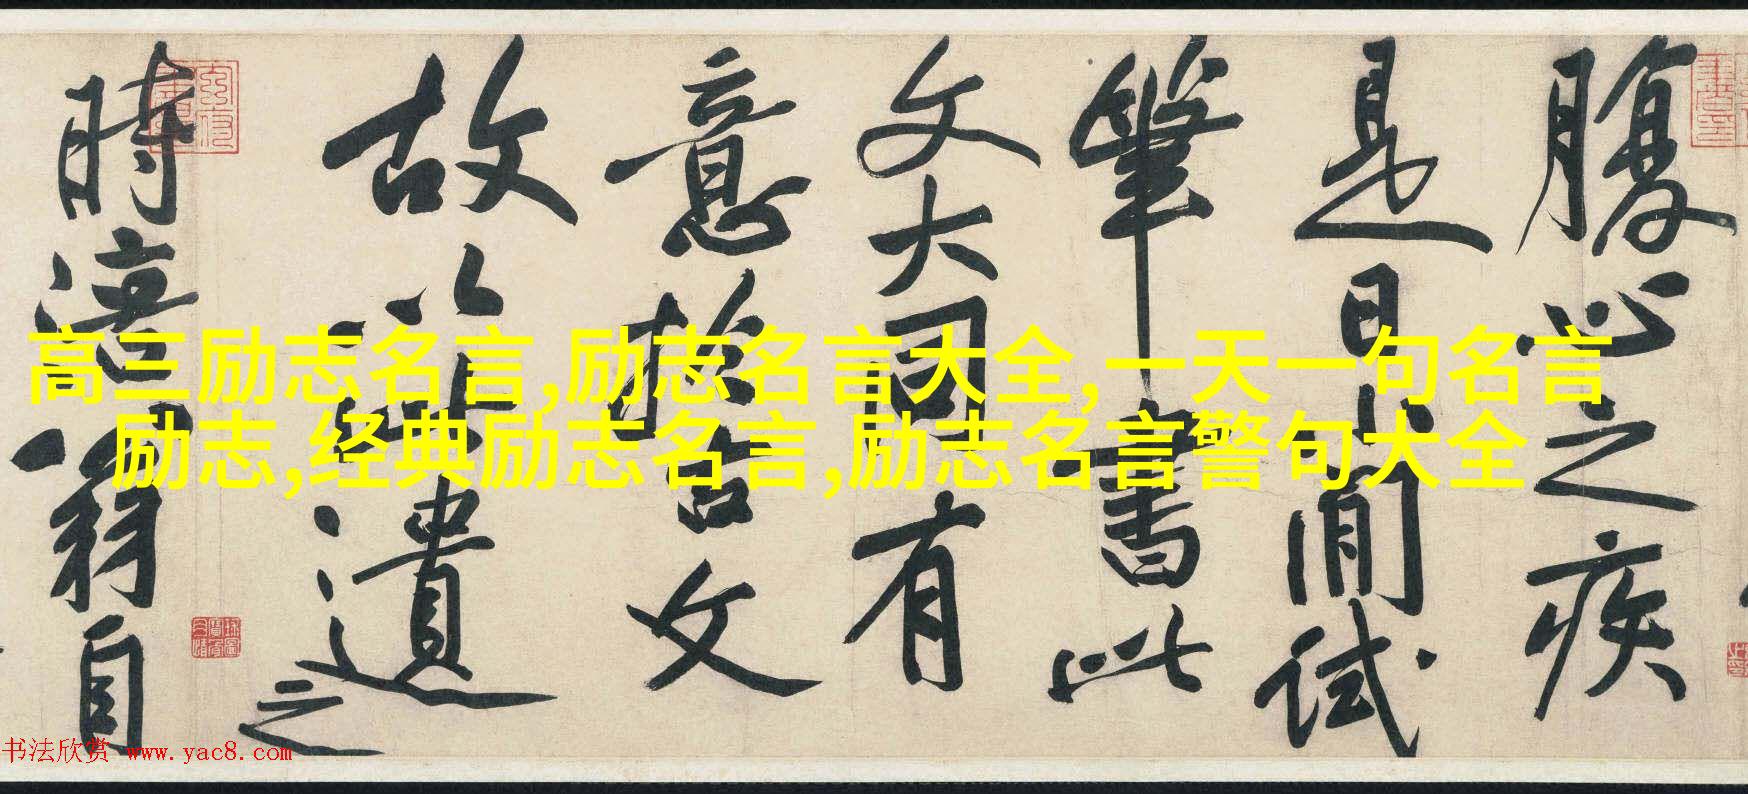 腹心之疾
是日小閒試
筆書此
文大同有
意於古文
故以遺之
時涪翁自
高三励志名言,励志名言大全,一天一句名言
励志,经典励志名言,励志名言警句大全
书法欣赏 www.yac8.com